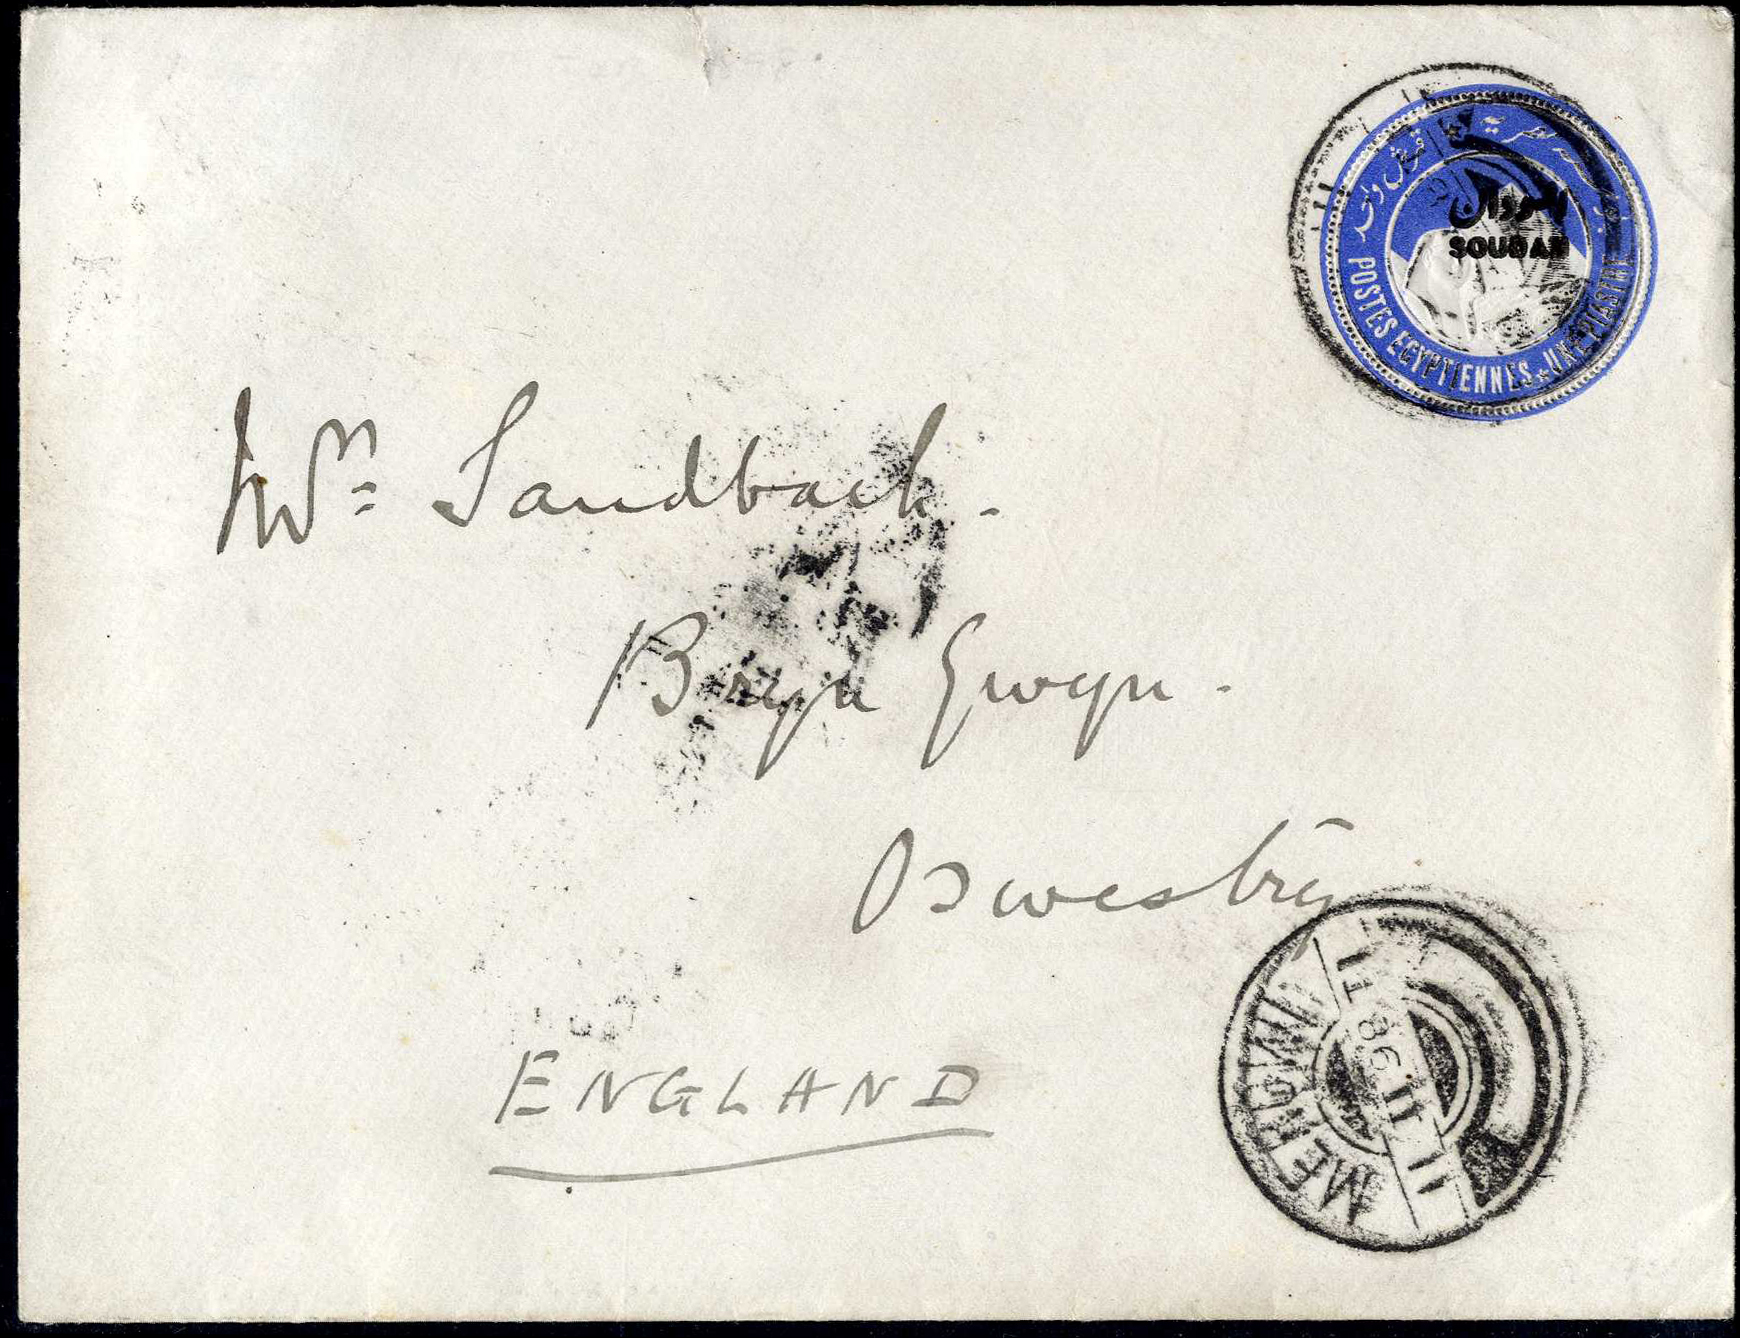 السودان
SOUDAN
قرش واحد
POSTES EGYPTIENNES UNE PIASTRE
Mrs Sandbach.
Bryn Gwyn.
Oswestry
ENGLAND
MEROWI
11 II 98 T1